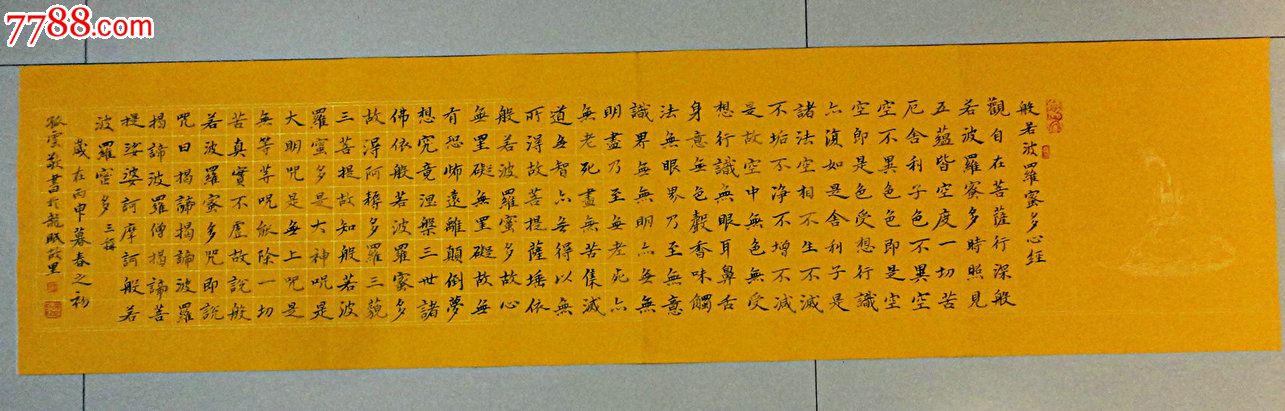 7788.com
般若波羅蜜多心經
觀自在菩薩行深般
若波羅蜜多時照見
五蘊皆空度一切苦
厄舍利子色不異空
空不異色色即是空
空即是色受想行識
亦復如是舍利子是
諸法空相不生不滅
不垢不淨不增不減
是故空中無色無受
想行識無眼耳鼻舌
身意無色聲香味觸
法無眼界乃至無意
識界無無明亦無無
明盡乃至無老死亦
無老死盡無苦集滅
道無智亦無得以無
所得故菩提薩埵依
般若波羅蜜多故心
無罣礙無罣礙故無
有恐怖遠離顛倒夢
想究竟涅槃三世諸
佛依般若波羅蜜多
故得阿耨多羅三藐
三菩提故知般若波
羅蜜多是大神咒是
大明咒是無上咒是
無等等咒能除一切
苦真實不虛故說般
若波羅蜜多咒即說
咒曰揭諦揭諦波羅
揭諦波羅僧揭諦菩
提娑婆訶摩訶般若
波羅蜜多 三稱
歲在丙申暮春之初
孤雲敬書於龍眠故里